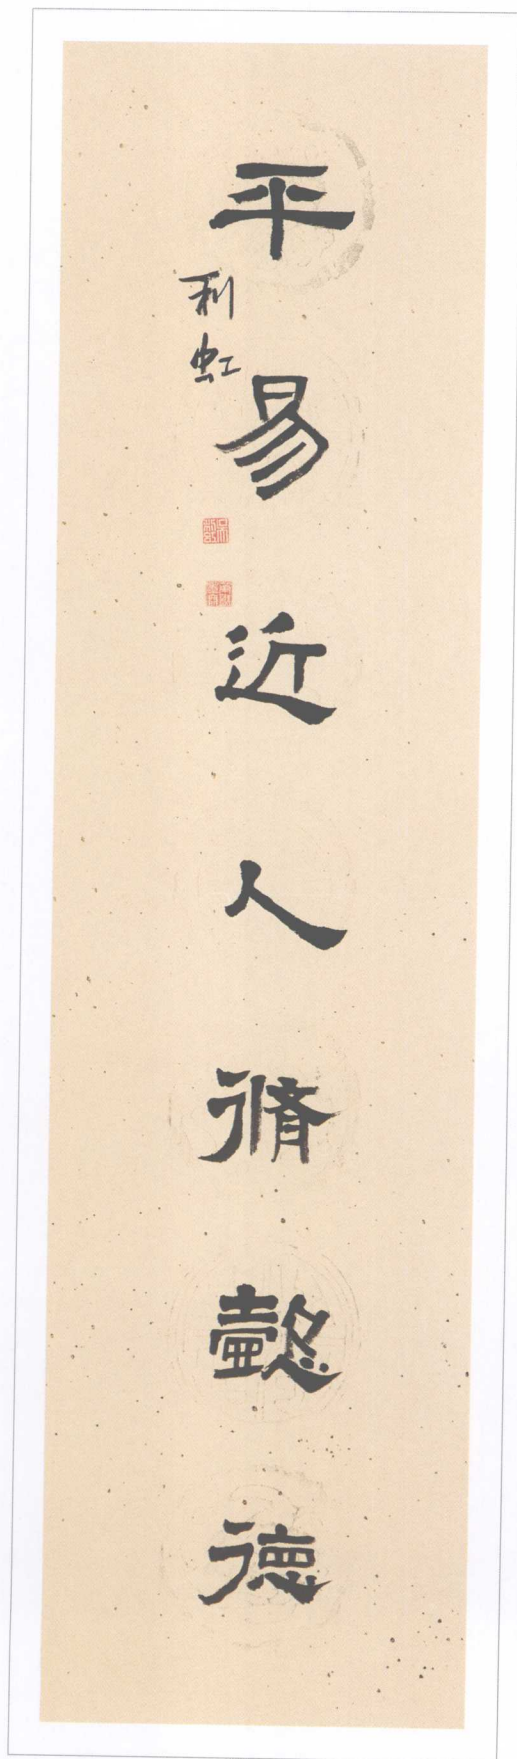 平易近人脩懿德
利虹